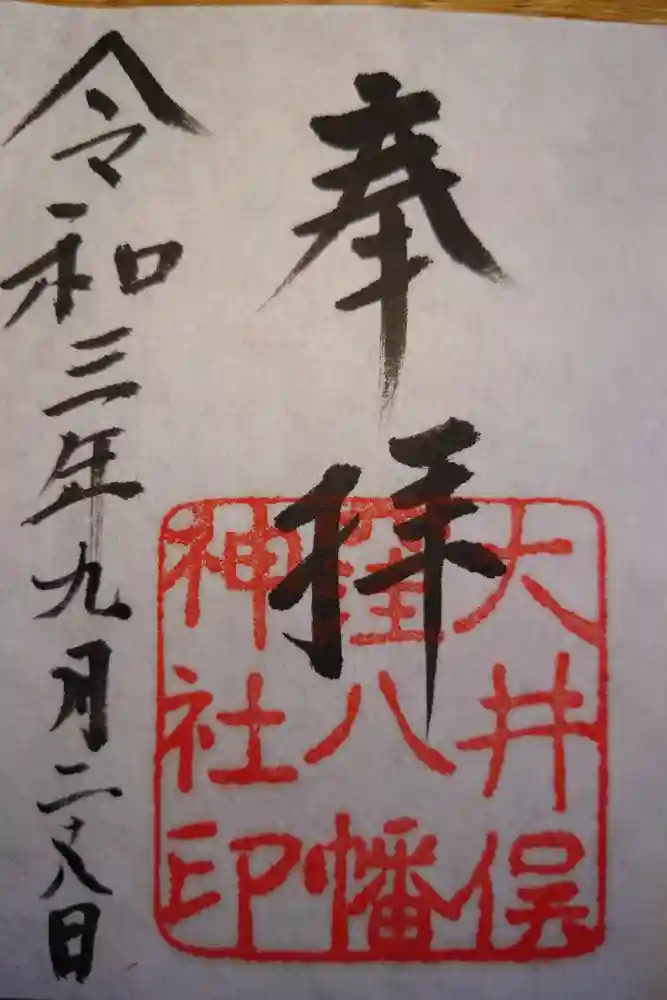 奉拝
大井俣
窪八幡
神社印
令和三年九月二十八日